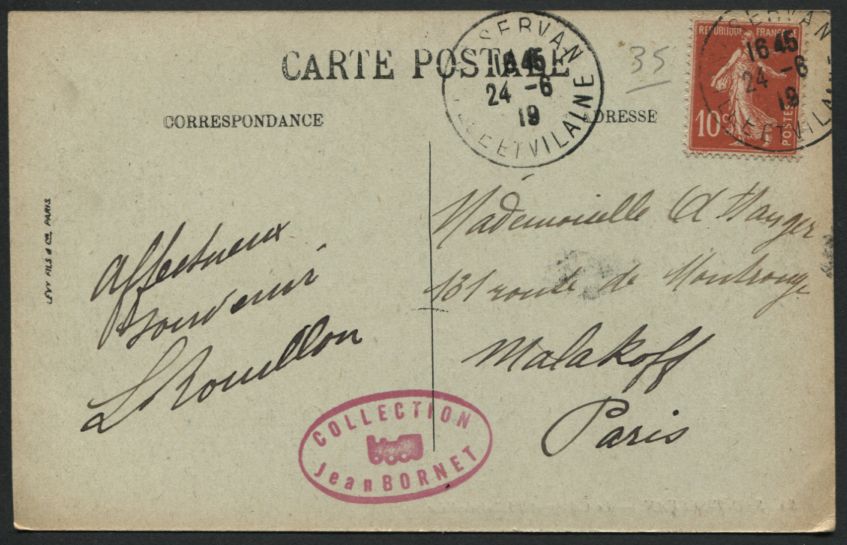 CARTE POSTALE
CORRESPONDANCE
ADRESSE
35
SERVAN
16 45
24 - 6
19
ILLE ET VILAINE
REPUBLIQUE FRANÇAISE
10 c
POSTES
SERVAN
16 45
24 - 6
19
ILLE ET VILAINE
LEVY FILS & Cie PARIS
Affectueux
Souvenir
L Rouillon
Mademoiselle
131 route de Montrouge
Malakoff
Paris
COLLECTION
Jean BORNET